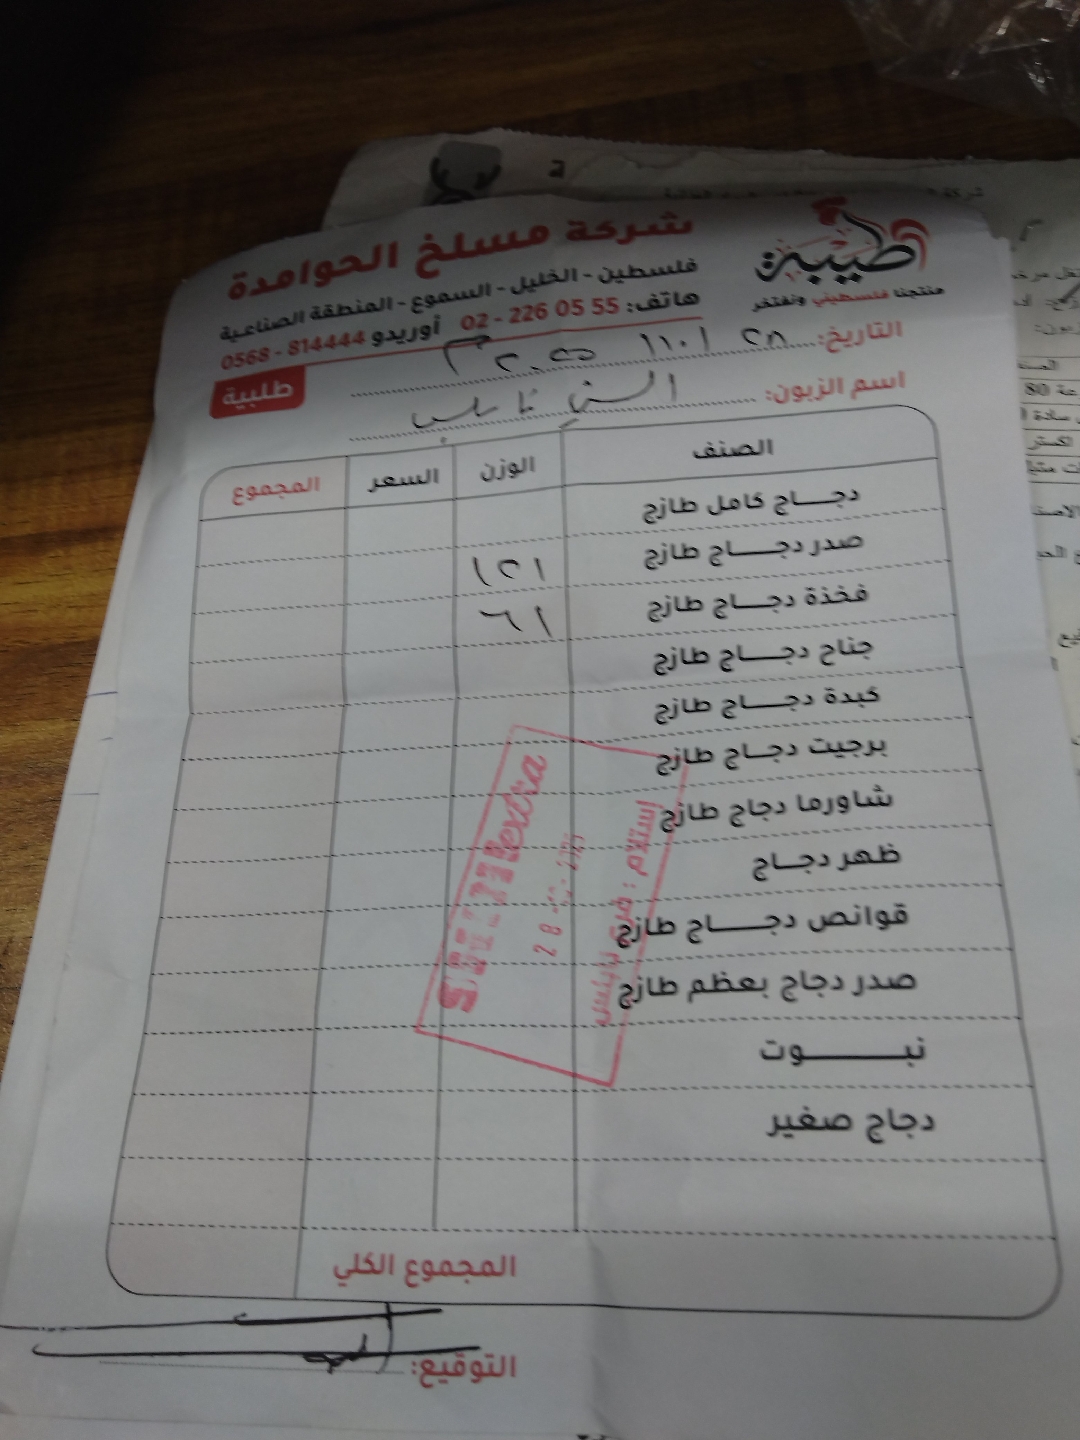 طيبة
منتجنا فلسطيني ونفتخر
شركة مسلخ الحوامدة
فلسطين - الخليل - السموع - المنطقة الصناعية
هاتف: 55 05 226 - 02 أوريدو 814444 - 0568
طلبية
التاريخ: ٢٨ / ١٠ / ٢٠٢٥
اسم الزبون:
الصنف الوزن السعر المجموع
دجاج كامل طازج
صدر دجاج طازج ١٢١
فخذة دجاج طازج ٦١
جناح دجاج طازج
كبدة دجاج طازج
برجيت دجاج طازج
شاورما دجاج طازج
ظهر دجاج
قوانص دجاج طازج
صدر دجاج بعظم طازج
نبوت
دجاج صغير
المجموع الكلي
التوقيع:
استلام: فرع نابلس